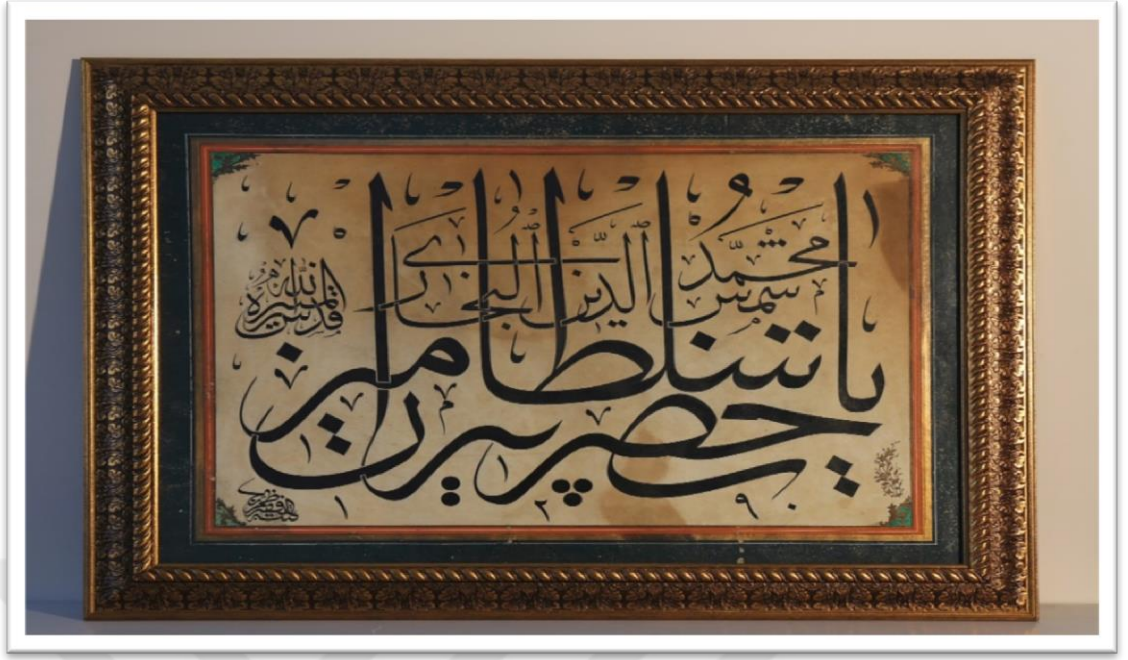 يا حضرت پير سلطان امير
محمد شمس الدين البخارى
قدس الله سره
١٢٩٠